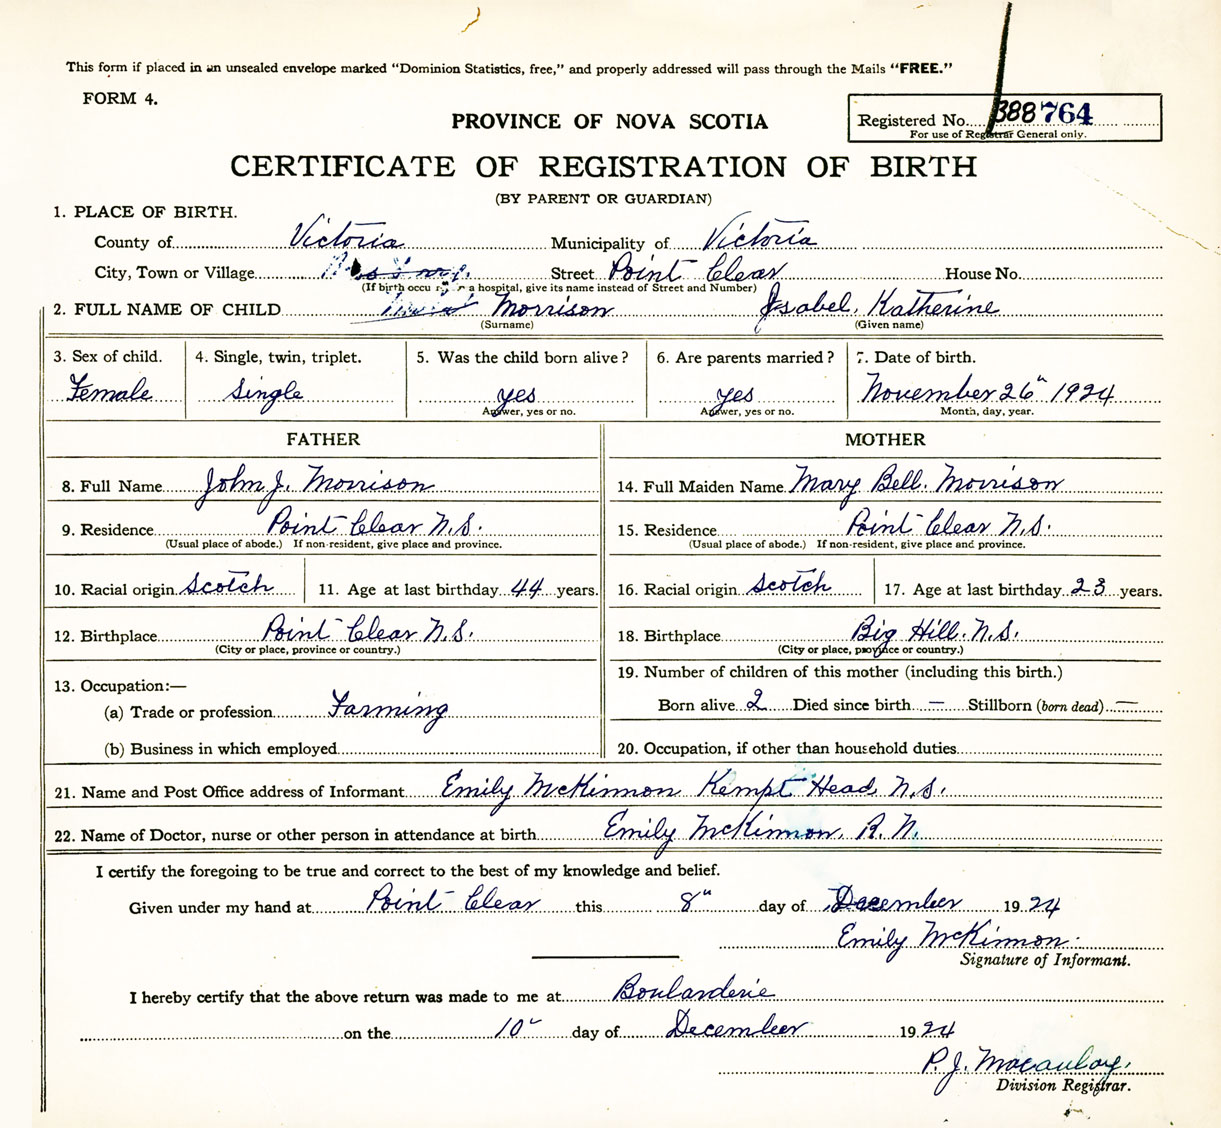 This form if placed in an unsealed envelope marked "Dominion Statistics, free," and properly addressed will pass through the Mails "FREE."
FORM 4.
PROVINCE OF NOVA SCOTIA
Registered No. 388764
For use of Registrar General only.
CERTIFICATE OF REGISTRATION OF BIRTH
(BY PARENT OR GUARDIAN)
1. PLACE OF BIRTH.
County of Victoria Municipality of Victoria
City, Town or Village Street Point Clear House No.
(If birth occurs in a hospital, give its name instead of Street and Number)
2. FULL NAME OF CHILD Morrison Isabel, Katherine
(Surname) (Given name)
3. Sex of child. 4. Single, twin, triplet. 5. Was the child born alive? 6. Are parents married? 7. Date of birth.
Female Single yes yes November 26" 1924
Answer, yes or no. Answer, yes or no. Month, day, year.
FATHER MOTHER
8. Full Name John J. Morrison 14. Full Maiden Name Mary Bell. Morrison
9. Residence Point Clear N.S. 15. Residence Point Clear N.S.
(Usual place of abode.) If non-resident, give place and province. (Usual place of abode.) If non-resident, give place and province.
10. Racial origin Scotch 11. Age at last birthday 44 years. 16. Racial origin Scotch 17. Age at last birthday 23 years.
12. Birthplace Point Clear N.S. 18. Birthplace Big Hill. N.S.
(City or place, province or country.) (City or place, province or country.)
13. Occupation:— 19. Number of children of this mother (including this birth.)
(a) Trade or profession Farming Born alive 2 Died since birth — Stillborn (born dead) —
(b) Business in which employed 20. Occupation, if other than household duties
21. Name and Post Office address of Informant Emily McKinnon Kempt Head, N.S.
22. Name of Doctor, nurse or other person in attendance at birth Emily McKinnon, R.N.
I certify the foregoing to be true and correct to the best of my knowledge and belief.
Given under my hand at Point Clear this 8" day of December 1924
Emily McKinnon.
Signature of Informant.
I hereby certify that the above return was made to me at Boularderie
on the 10" day of December 1924
P. J. Macaulay.
Division Registrar.